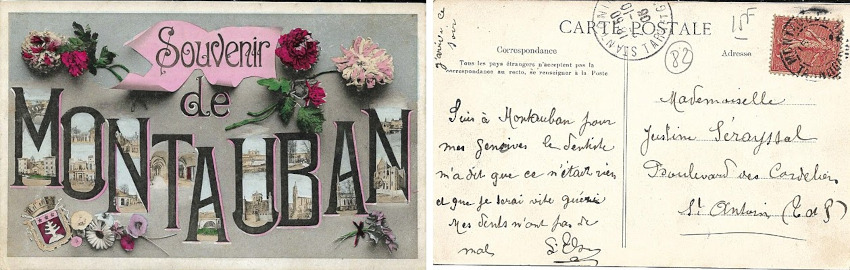 Souvenir
de
MONTAUBAN
CARTE POSTALE
Correspondance
Tous les pays étrangers n'acceptent pas la
correspondance au recto, se renseigner à la Poste
Adresse
82
J'arrive ce
soir
Suis à Montauban pour
mes gencives le dentiste
m'a dit que ce n'était rien
et que je serai vite guérie
Mes dents n'ont pas de
mal
Mademoiselle
Justine Sérayssal
Boulevard des Cordeliers
St Antonin (T et G)